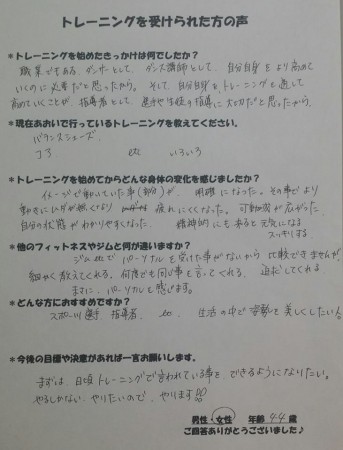 トレーニングを受けられた方の声
＊トレーニングを始めたきっかけは何でしたか？
職業でもある、ダンサーとして、ダンス講師として、自分自身をより高めて
いくに必要だと思ったから。そして、自分自身をトレーニングを通して
高めていくことが、指導者として、選手や生徒の指導に大切だと思ったから。
＊現在あおいで行っているトレーニングを教えてください。
バランスシューズ
コア etc いろいろ
＊トレーニングを始めてからどんな身体の変化を感じましたか？
イメージで動いていた事(部分)が、明確になった。その事でより
動きにムダが無くなり 疲れにくくなった。可動域が広がった。
自分の状態がわかりやすくなった。精神的にもあると元気になる
スッキリする
＊他のフィットネスやジムと何が違いますか？
ジムetcでパーソナルを受けた事がないから比較できませんが、
細かく教えてくれる。何度でも同じ事を言ってくれる。追求してくれる
まさに、パーソナルを感じます。
＊どんな方におすすめですか？
スポーツ選手、指導者、etc、生活の中で姿勢を美しくしたい人。
＊今後の目標や決意があれば一言お願いします。
まずは、日頃トレーニングで言われている事をできるようになりたい。
やるしかない、やりたいので、やります!!
男性・女性 年齢 44 歳
ご回答ありがとうございました♪